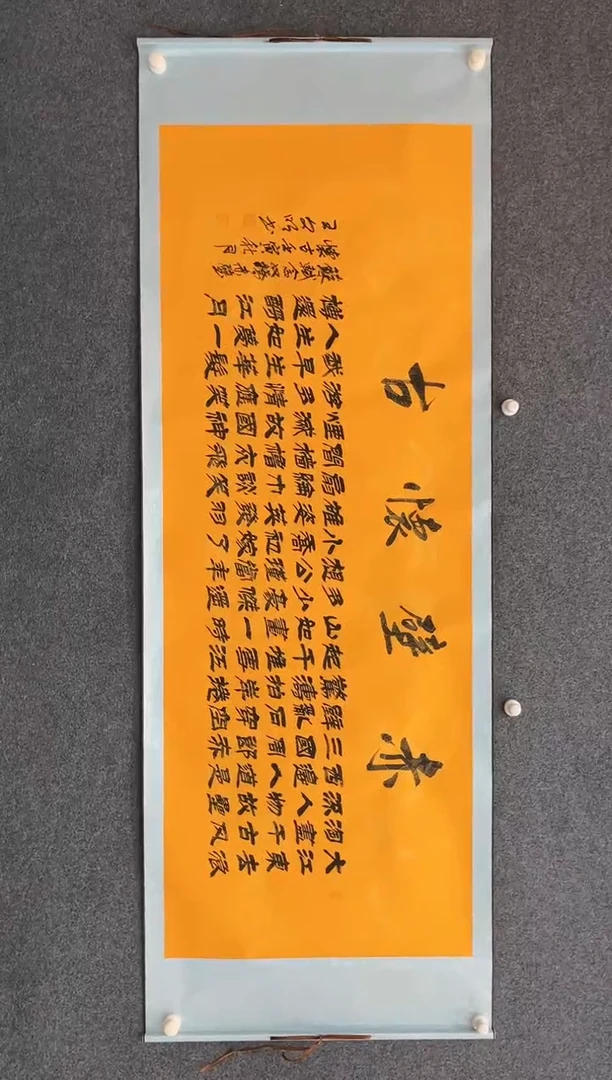 赤壁懷古
大江東去浪
淘盡千古風
流人物故壘
西邊人道是
三國周郎赤
壁亂石穿空
驚濤拍岸捲
起千堆雪江
山如畫一時
多少豪傑遙
想公瑾當年
小喬初嫁了
雄姿英發羽
扇綸巾談笑
間檣櫓灰飛
煙滅故國神
游多情應笑
我早生華髮
人生如夢一
樽還酹江月
蘇軾念奴嬌赤壁
懷古壬寅秋月